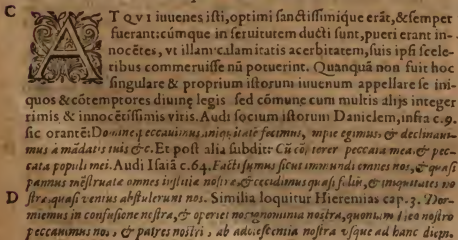 C
AT QVI iuuenes isti, optimi sanctissimique erãt, & semper
fuerant: cúmque in seruitutem ducti sunt, pueri erant in-
nocētes, vt illam calamitatis acerbitatem, suis ipsi scele-
ribus commeruisse nũ potuerint. Quanquã non fuit hoc
singulare & proprium istorum iuuenum appellare se ini-
quos & cõtemptores diuinę legis sed cõmune cum multis alijs integer
rimis & innocẽtissimis viris. Audi socium istorum Danielem, infra c.9.
sic orantē: Domine peccauimus, iniquitatē fecimus, impie egimus, & declinaui-
mus à mãdatis tuis &c. Et post alia subdit Cũ cõfiterer peccata mea, & pec-
cata populi mei. Audi Isaiã c.64. Facti sumus sicut immundi omnes nos, & quasi
pannus mēstruatæ omnes iustitiæ nostræ, & cecidimus quasi foliũ, & iniquitates no
D stræ, quasi ventus abstulerunt nos. Similia loquitur Hieremias cap. 3. Dor-
miemus in confusione nostra, & operiet nos ignominia nostra, quoniam Deo nostro
peccauimus nos, & patres nostri, ab adolescentia nostra vsque ad hanc diem.